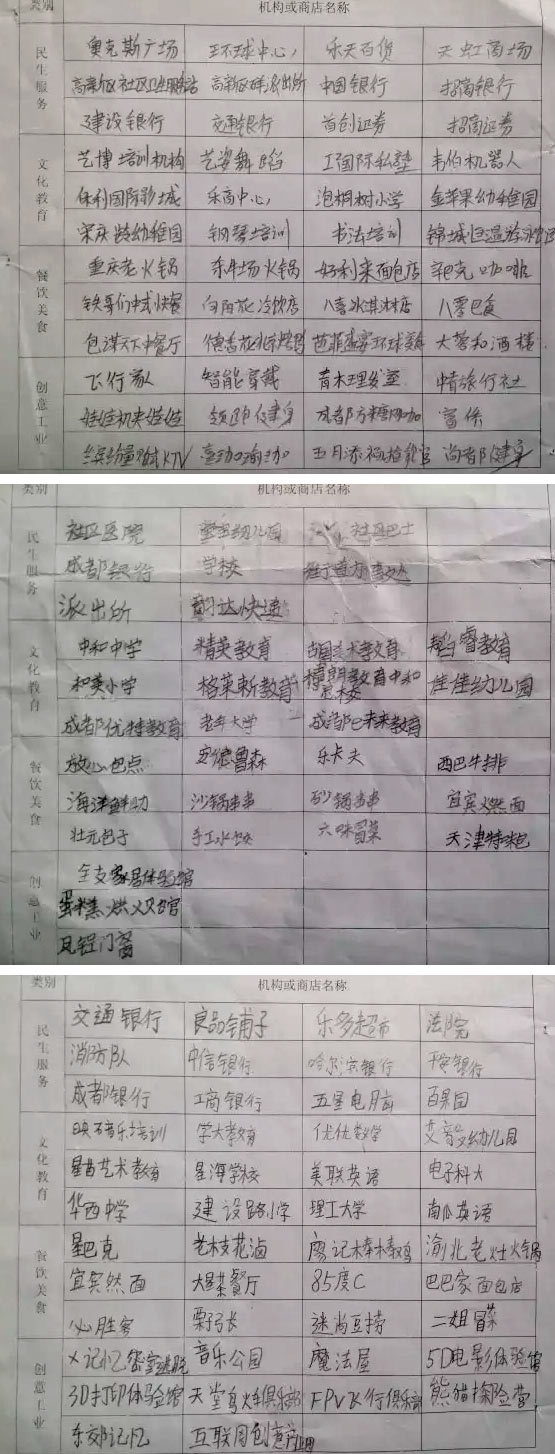 类别 机构或商店名称
民生服务 奥克斯广场 环球中心 乐天百货 天虹商场
高新区社区卫生服务站 高新区 派出所 中国银行 招商银行
建设银行 交通银行 首创证券 招商证券
文化教育 艺博培训机构 艺姿舞蹈 工国际私塾 韦伯机器人
保利国际影城 乐高中心 泡桐树小学 金苹果幼稚园
宋庆龄幼稚园 钢琴培训 书法培训 锦城恒温游泳馆
餐饮美食 重庆老火锅 乐牛场火锅 好利来面包店 咖啡
铁哥们中式快餐 向阳花冷饮店 八喜冰淇淋店 八零
包谋天下中餐厅 德香花北京烤鸭 芭菲盛宴环球 大蓉和酒楼
创意工业 飞行家 智能穿戴 青木理发室 中青旅行社
娃娃机夹娃娃 健身 成都方糖 富侨
缤纷量贩式KTV 瑜珈 五月添福 健身
类别 机构或商店名称
民生服务 社区医院 幼儿园 社区巴士
成都银行 学校 街道办事处
派出所 韵达快递
文化教育 中和中学 精英教育 美术教育 翰睿教育
和美小学 格莱新教育 博朗教育中和总校 佳佳幼儿园
成都优特教育 老年大学 成都e未来教育
餐饮美食 放心包点 安德鲁森 乐卡夫 西巴牛排
海洋鲜动 沙锅串串 砂锅串串 宜宾燃面
壮元包子 手工水饺 六味冒菜 天津特味包
创意工业 全友家居体验馆
蛋糕烘焙馆
瓦程门窗
类别 机构或商店名称
民生服务 交通银行 良品铺子 乐多超市 法院
消防队 中信银行 哈尔滨银行 平安银行
成都银行 工商银行 五星电脑 百果园
文化教育 映石音乐培训 学大教育 优优数学 艾音文幼儿园
星苗艺术教育 星海学校 美联英语 电子科大
华西中学 建设路小学 理工大学 南瓜英语
餐饮美食 星巴克 老枝花卤 廖记棒棒鸡 渝北老灶火锅
宜宾燃面 大蓉餐厅 85度C 巴巴家面包店
必胜客 栗子长 迷尚豆捞 二姐冒菜
创意工业 X记忆密室逃脱 音乐公园 魔法屋 5D电影体验馆
3D打印体验馆 天堂鸟火车俱乐部 FPV飞行俱乐部 熊猫探险营
东郊记忆 互联网创意产业园